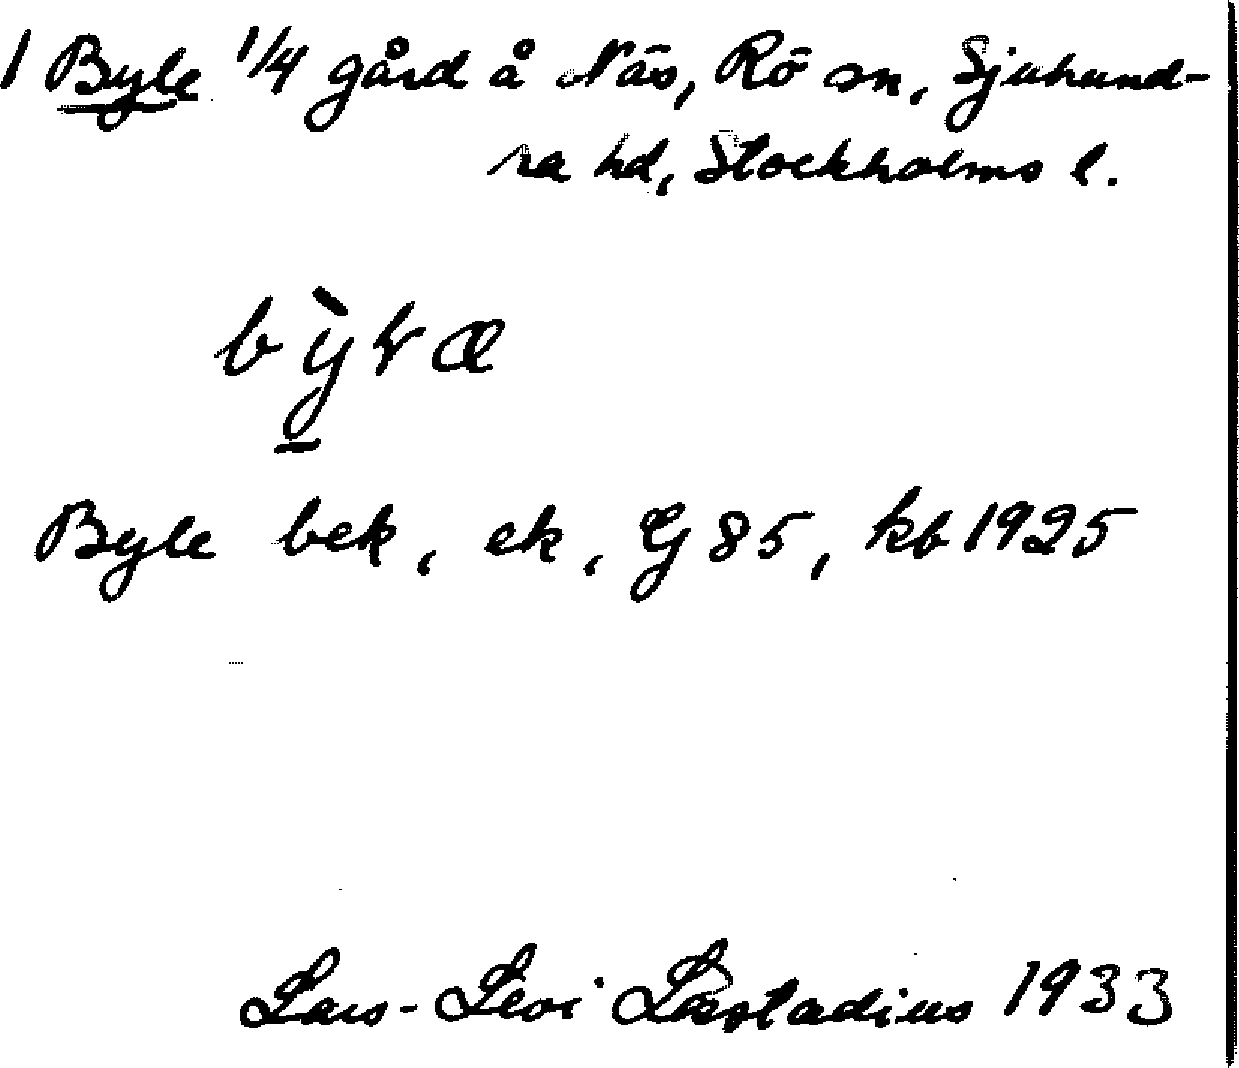 1 Byle 1/4 gård å Näs, Rö sn, Sjuhund-
ra hd, Stockholms l.
Byle bek, ek, G 85, kb 1925
Lars-Levi Læstadius 1933